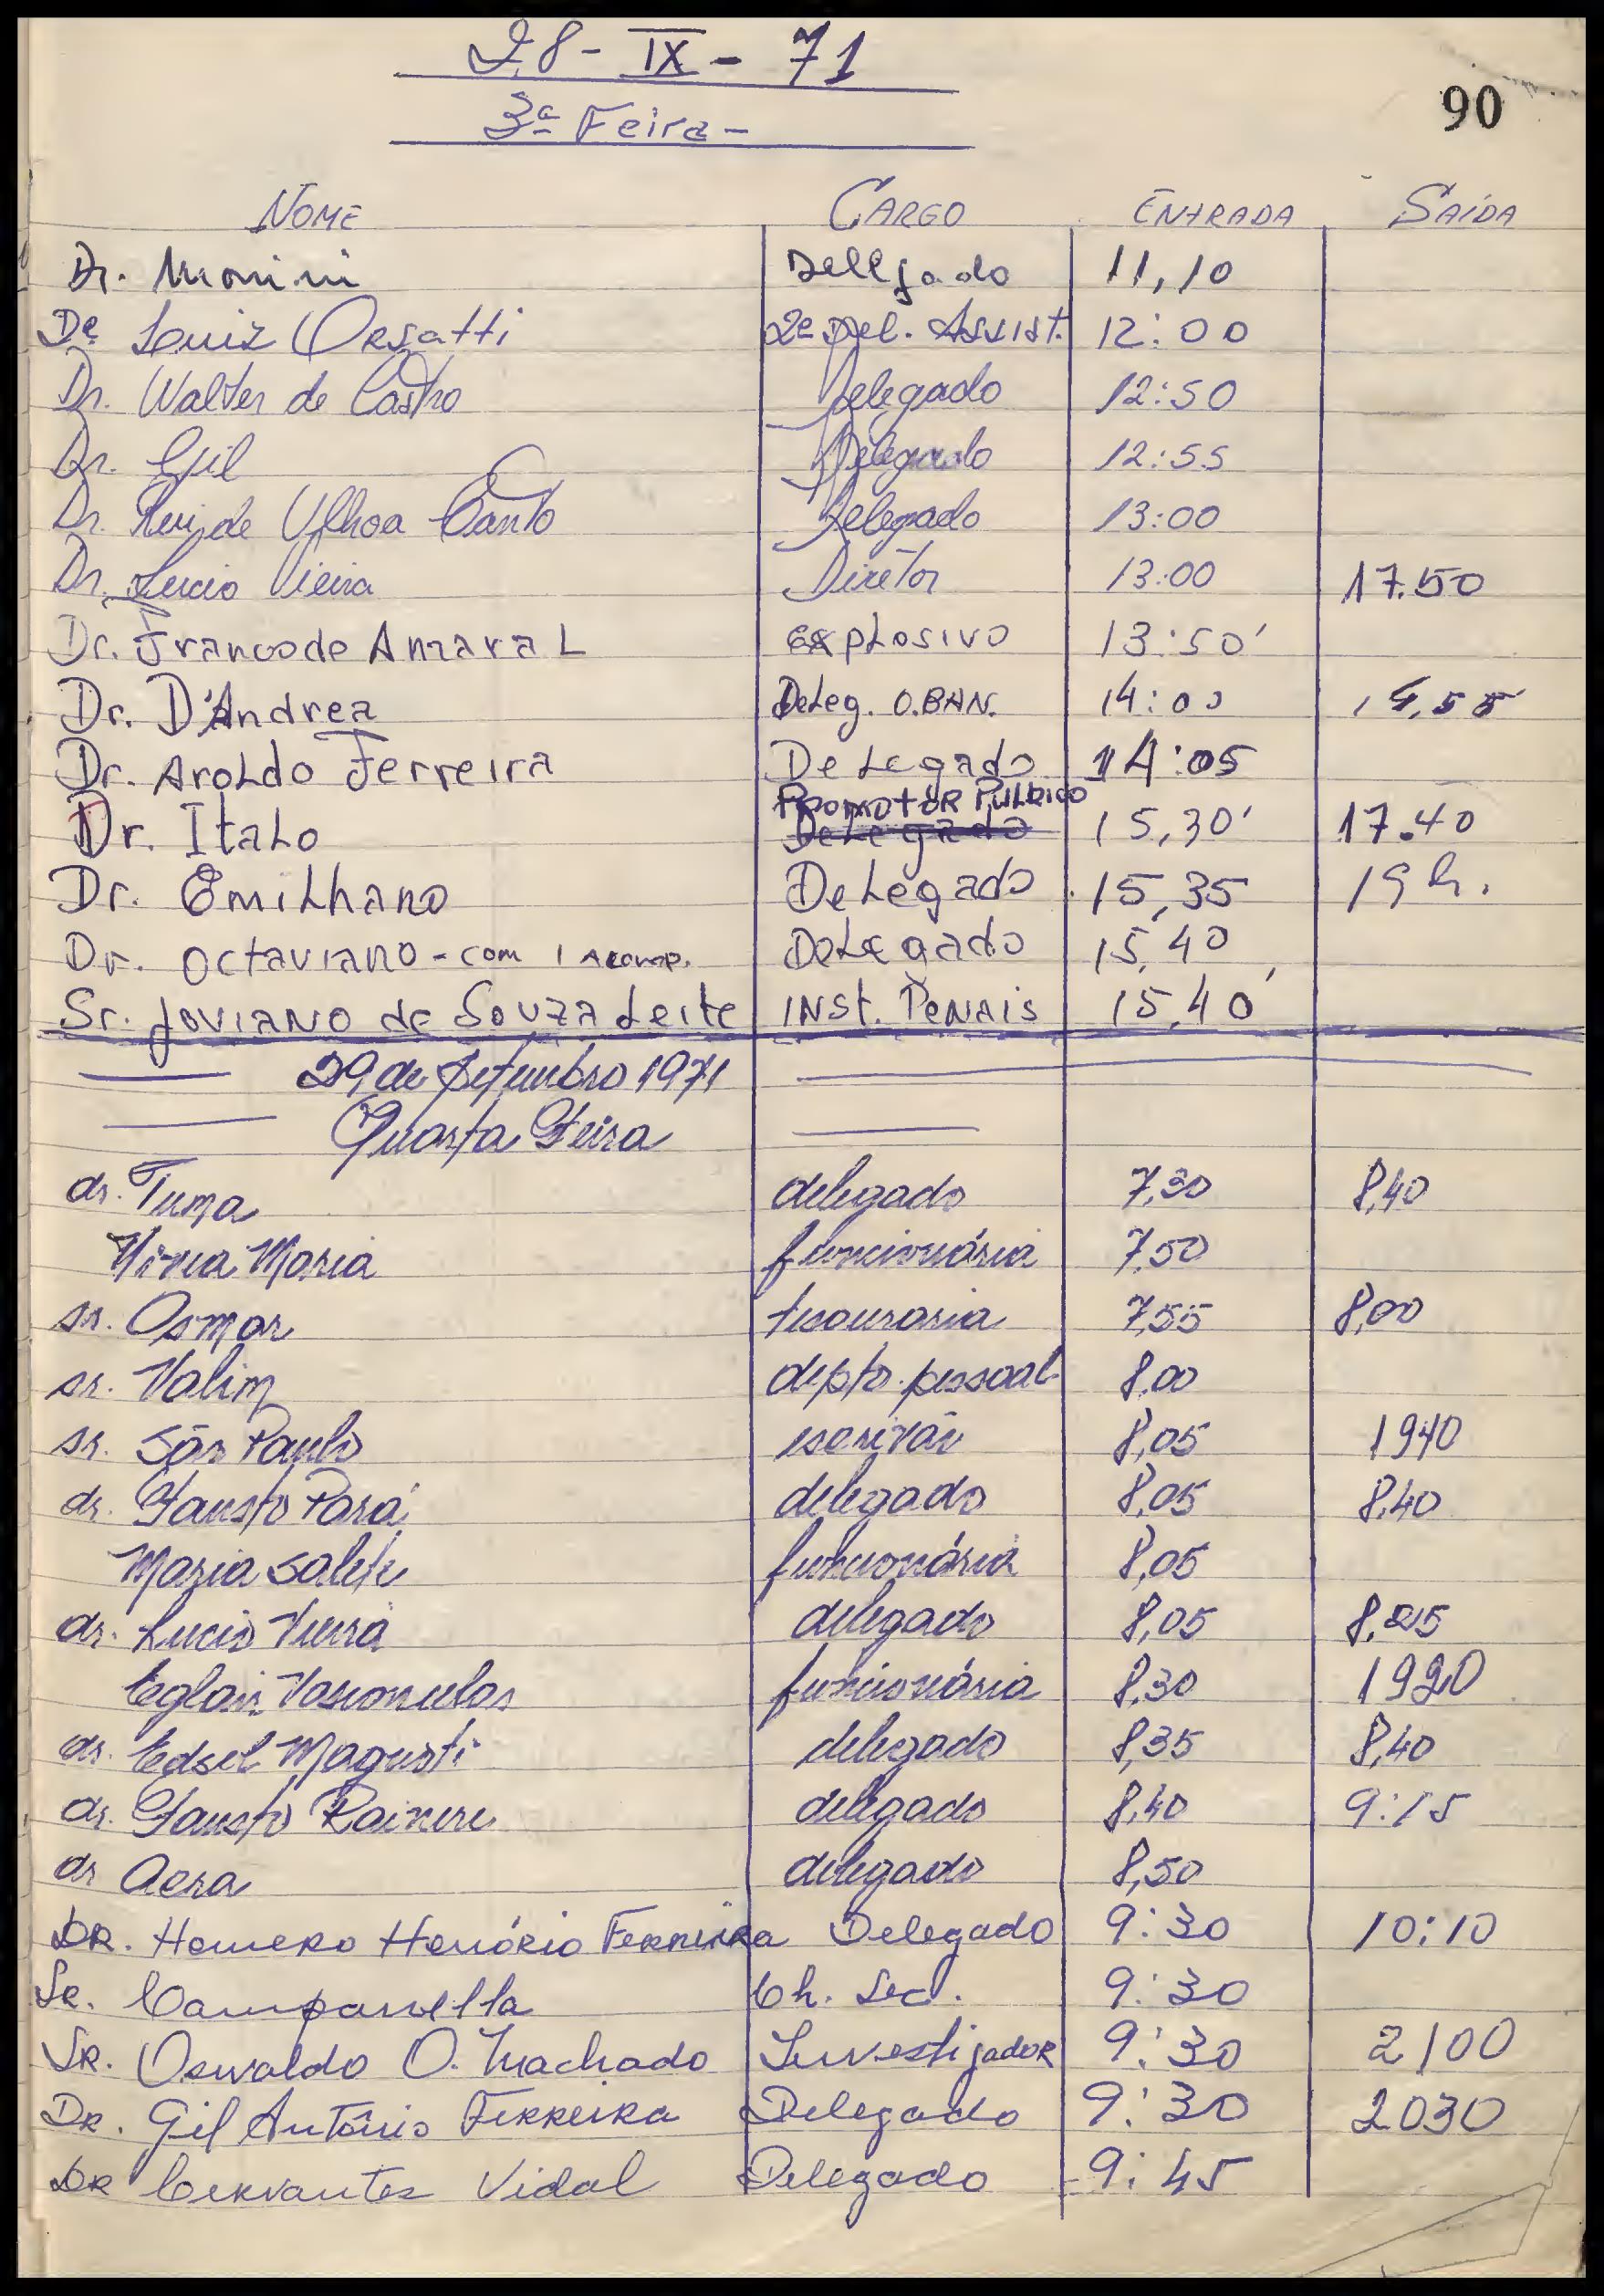 28 - IX - 71
90
3ª Feira -
NOME CARGO ENTRADA SAÍDA
Dr. Monini Dellgado 11,10
Dr. Luiz Orsatti 2º Del. Assist. 12:00
Dr. Walter de Castro Delegado 12:50
Dr. Gil Delegado 12:55
Dr. Rui de Ulhoa Canto Delegado 13:00
Dr. Lucio Vieira Diretor 13:00 17.50
Dr. Franco de Amaral Explosivo 13:50'
Dr. D'Andrea Deleg. O.BAN. 14:00
Dr. Aroldo Ferreira Delegado 14:05
Promotor Publico
Dr. Italo Delegado 15,30' 17.40
Dr. Emilhano Delegado 15,35 19 h.
Dr. Octaviano - com 1 acomp. Delegado 15,40
Sr. Joviano de Souza Leite Inst. Penais 15,40'
29 de Setembro 1971
Quarta Feira
dr. Tuma delegado 7,30 8,40
Maria funcionária 7,50
sr. Osmar tesouraria 7,55 8,00
sr. Valim depto. pessoal 8,00
sr. São Paulo escrivão 8,05 1940
dr. Fausto Pará delegado 8,05 8,40
Maria Salete funcionária 8,05
dr. Lucio Vieira delegado 8,05
Eglair Vasconcelos funcionária 8,30 1920
dr. Edsel Magnoti delegado 8,35 8,40
dr. Fausto delegado 8,40 9:15
dr delegado 8,50
DR. Homero Honório Ferreira Delegado 9:30 10:10
Sr. Campanella Ch. Sec. 9:30
SR. Oswaldo O. Machado Investigador 9:30 2100
DR. Gil Antônio Ferreira Delegado 9:30 2030
DR Cervantes Vidal Delegado 9:45